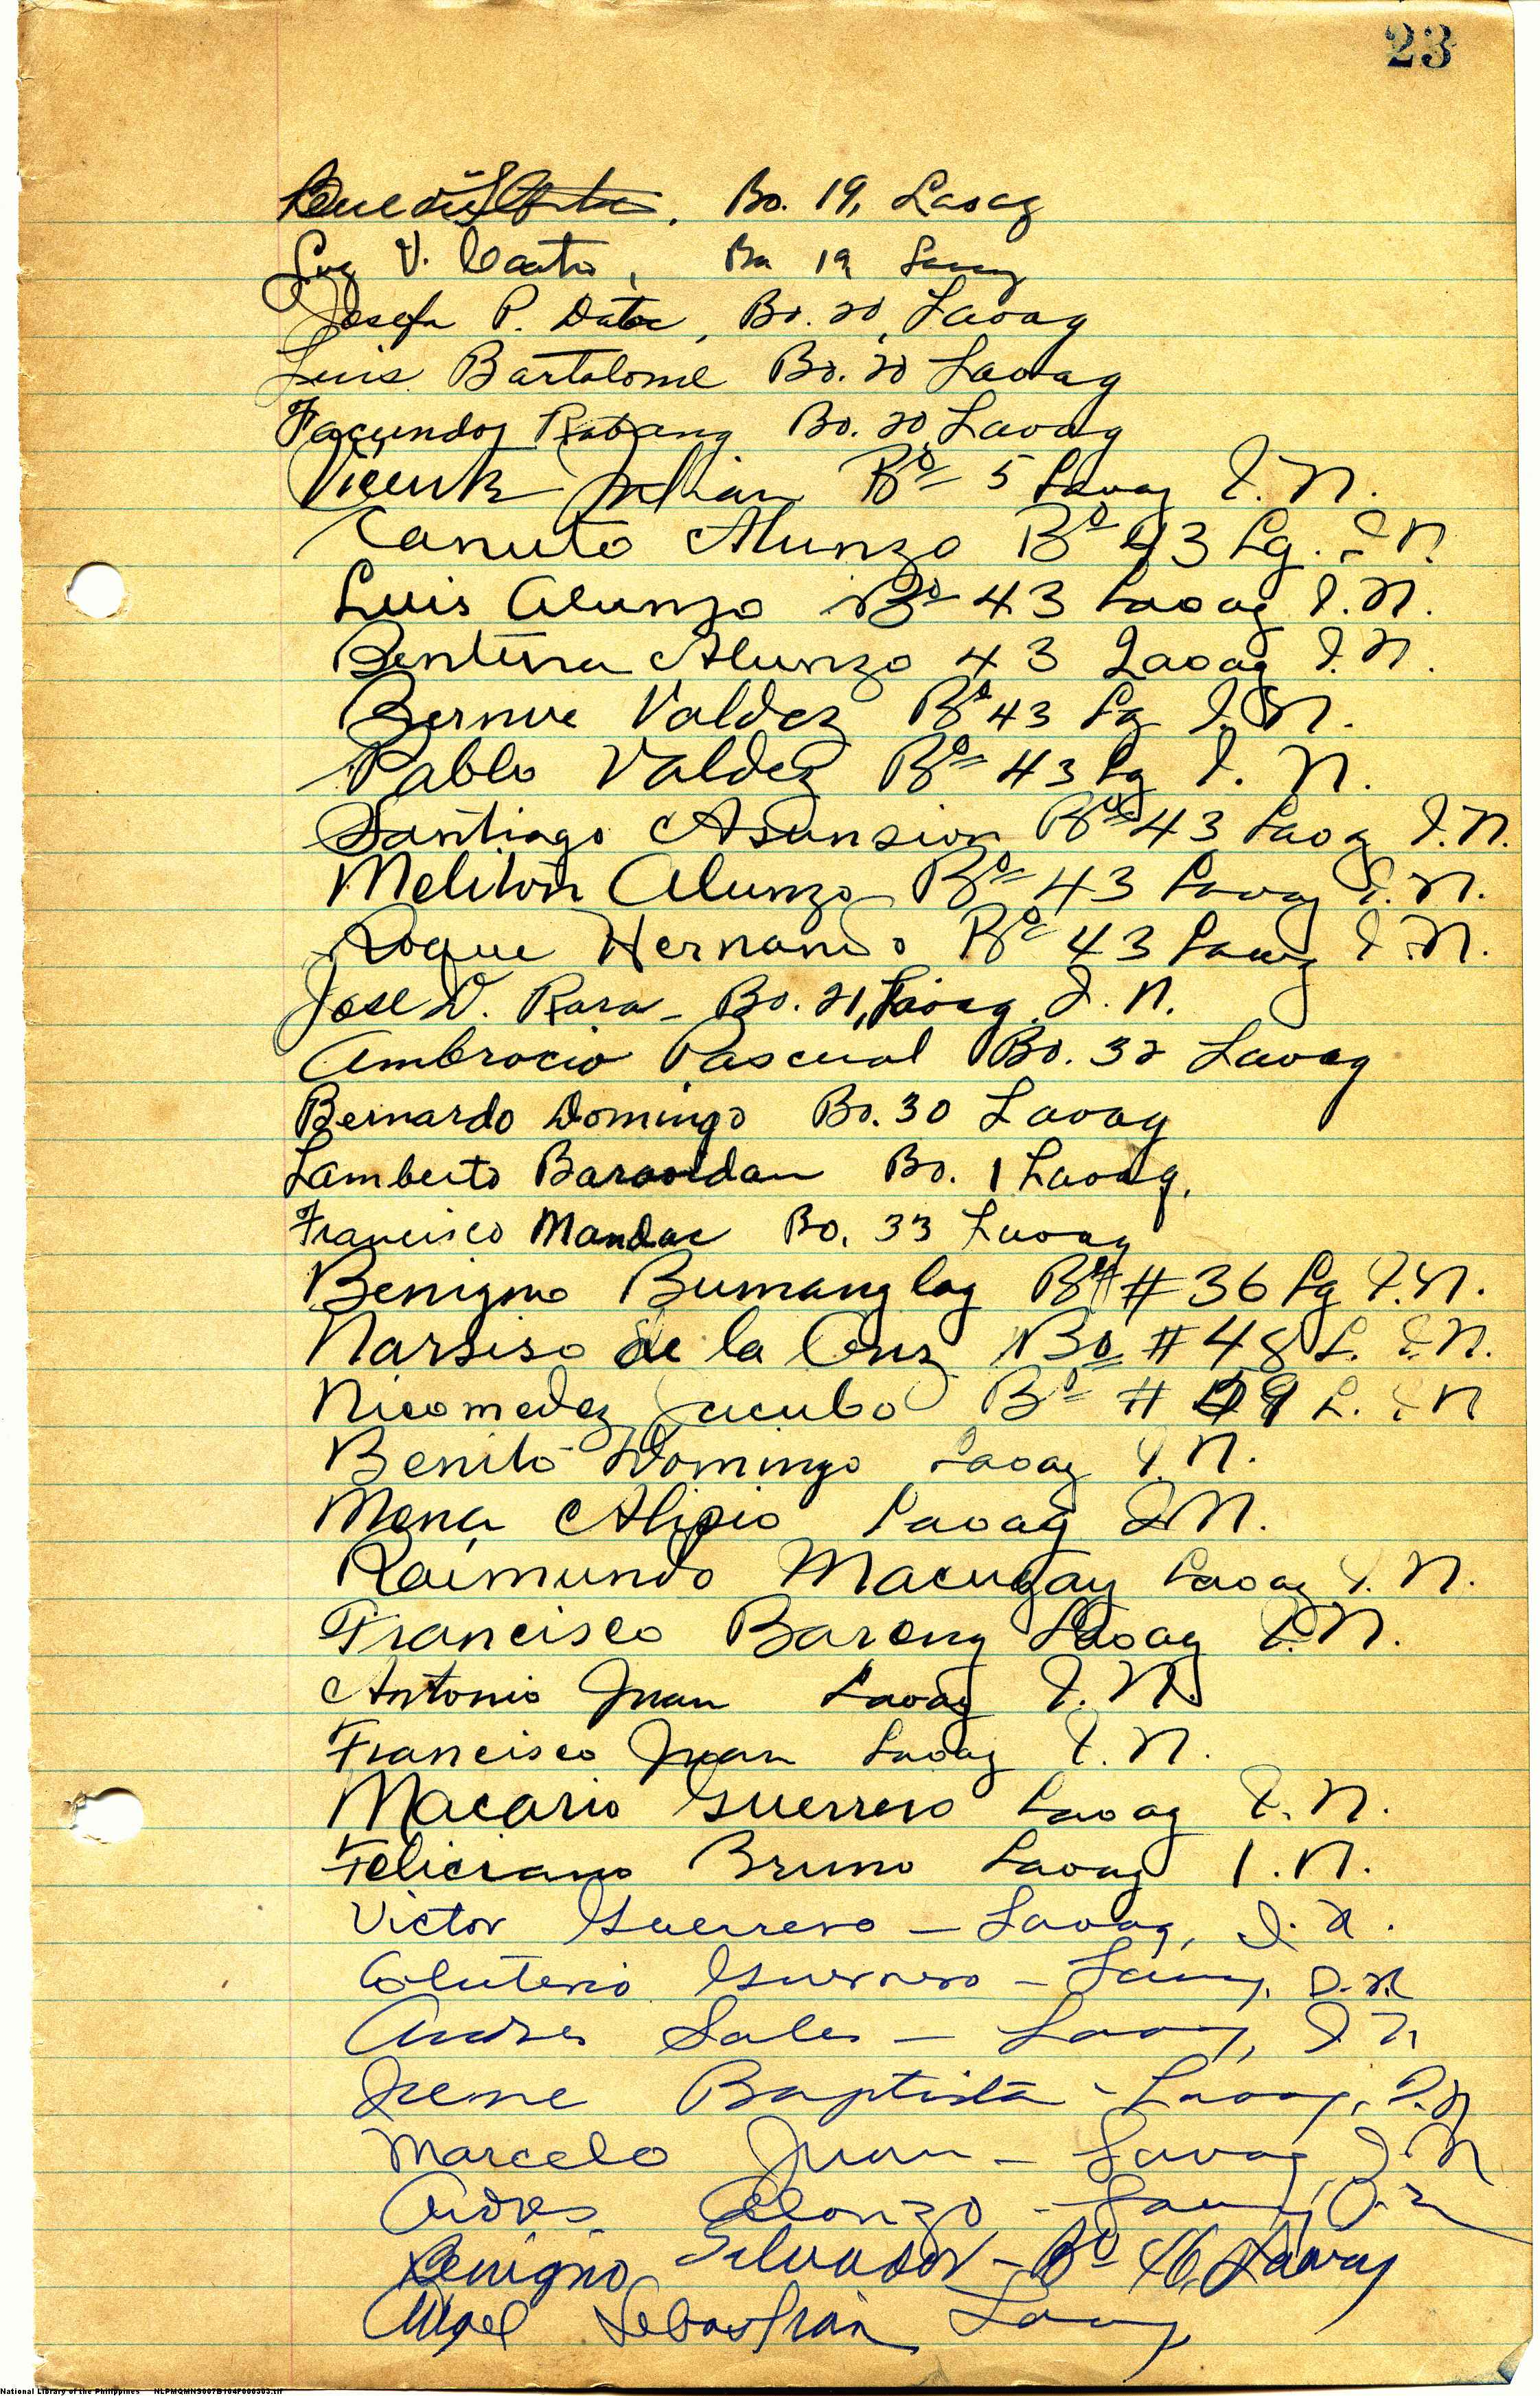 23
Bo. 19, Laoag
V. Bo 19 Laoag
Josefa P. Dato, Bo. 20, Laoag
Luis Bartolome Bo. 20 Laoag
Facundo Rabang Bo. 20, Laoag
Vicente Julian Bo 5 Laoag I.N.
Canuto Alunzo Bo 43 Lg. I N.
Luis Alunzo Bo 43 Laoag I.N.
Alunzo 43 Laoag I.N.
Valdez Bo 43 Lg I.N.
Pablo Valdez Bo 43 Lg I. N.
Santiago Asunsion Bo 43 Laoag I.N.
Meliton Alunzo Bo 43 Laoag I.N.
Roque Hernando Bo 43 Laoag I.N.
Jose D. Rara - Bo. 21, Laoag, I. N.
Ambrocio Pascual Bo. 32 Laoag
Bernardo Domingo Bo. 30 Laoag
Lamberto Baraoidan Bo. 1 Laoag.
Francisco Mandac Bo. 33 Laoag
Benigno Bumanglag Bo # 36 Lg I.N.
Narsiso de la Cruz Bo # 48 L. I.N.
Nicomedez Jacubo Bo # 49 L. I N
Benito Domingo Laoag I.N.
Mena Alipio Laoag I.N.
Raimundo Macugay Laoag I.N.
Francisco Bareng Laoag I.N.
Antonio Juan Laoag I.N.
Francisco Juan Laoag I.N.
Macario Guerrero Laoag I.N.
Feliciano Bruno Laoag I.N.
Victor Guerrero - Laoag, I.N.
Eluterio Guerrero - Laoag, I.N.
Andres Sales - Laoag, I N
Irene Baptista - Laoag, I.N
Marcelo Juan - Laoag, I.N
Andres Alonzo - Laoag, I.N
Benigno Salvador - Bo 46, Laoag
Angel Sebastian Laoag
National Library of the Philippines NLPMQMN3007B104F000303.tif